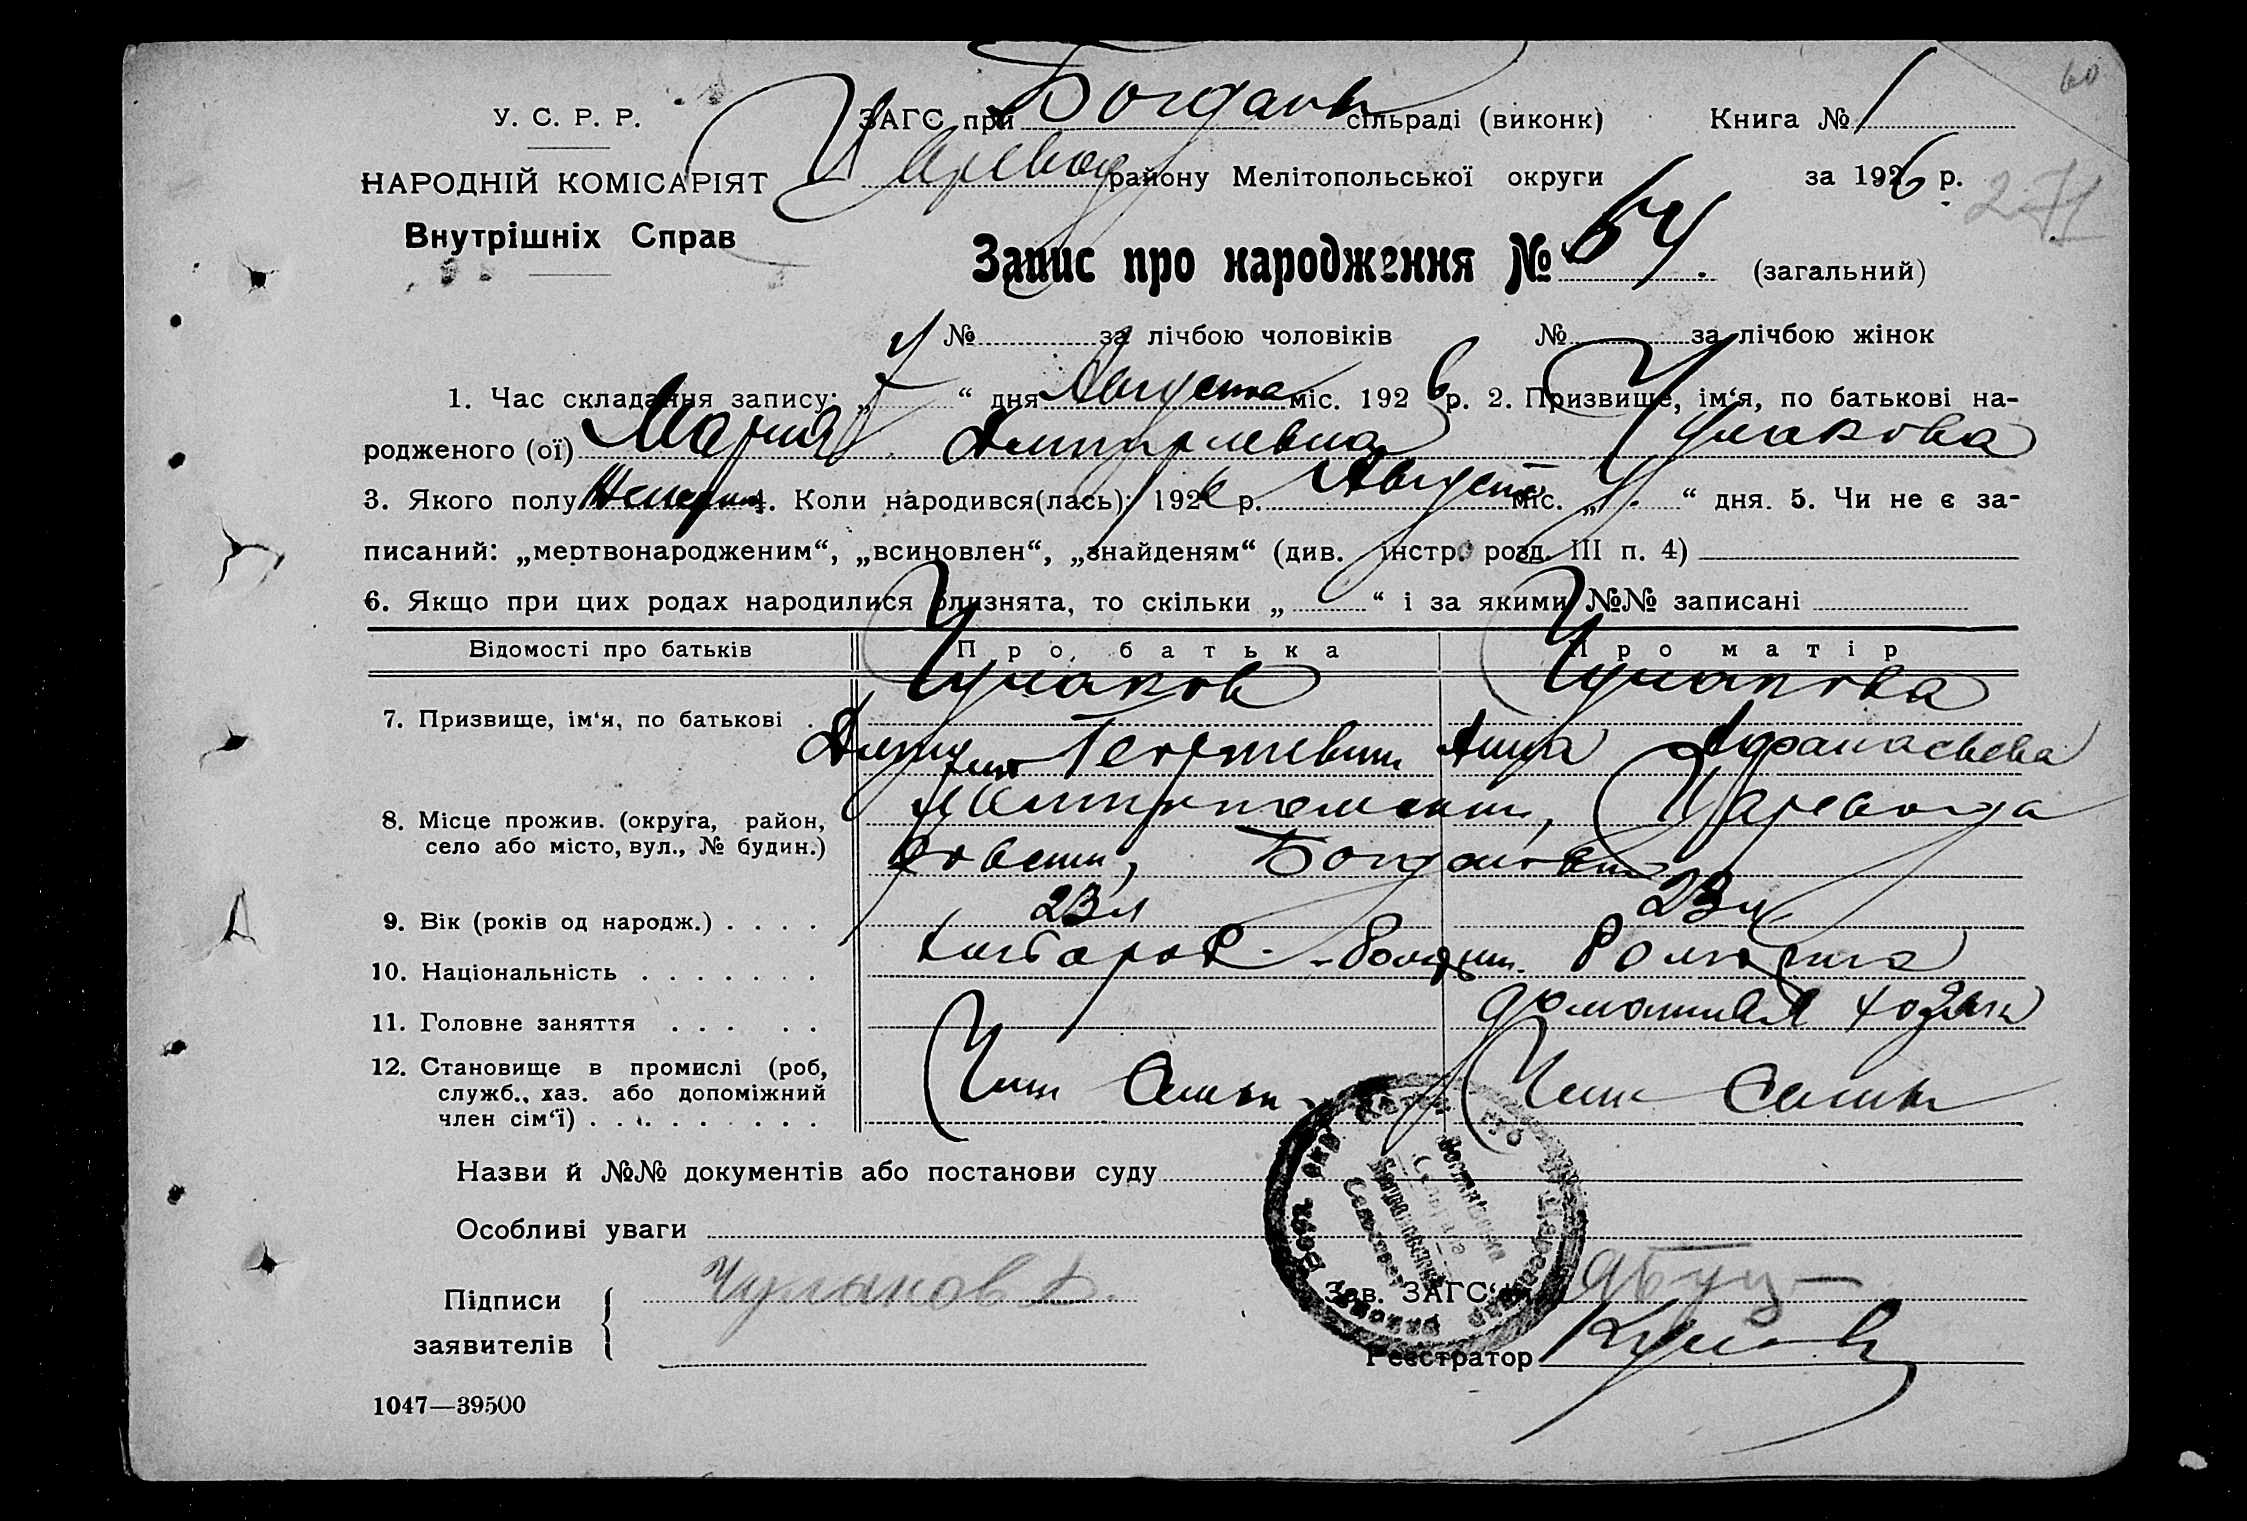 60
У. С. Р. Р.
ЗАГС при Богданів сільраді (виконк) Книга № 1
НАРОДНІЙ КОМІСАРІЯТ
Царевод району Мелітопольської округи за 1926 р.
271
Внутрішніх Справ
Запис про народження № 54. (загальний)
№ за лічбою чоловіків № за лічбою жінок
1. Час складання запису: „ “ дня Августа міс. 1926 р. 2. Призвище, ім‘я, по батькові на-
родженого (ої) Мария Дмитриевна Чумакова
3. Якого полу 4. Коли народився(лась): 1926 р. Август міс. „ “ дня. 5. Чи не є за-
писаний: „мертвонародженим“, „всиновлен“, „знайденям“ (див. інстр. розд. III п. 4)
6. Якщо при цих родах народилися близнята, то скільки „ “ і за якими №№ записані
Відомості про батьків Про батька Про матір
Чумаков Чумакова
7. Призвище, ім‘я, по батькові
Дмитрий Георгиевич Анна Афанасьева
8. Місце прожив. (округа, район, село або місто, вул., № будин.)
Мелитопольськи, Царевода
ровски, Богдановка
9. Вік (років од народж.) 23 л 23 л
10. Національність Болгарин. Болгарка
11. Головне заняття домашняя хозяй
12. Становище в промислі (роб, служб., хаз. або допоміжний член сім‘ї) Член Семьи Член Семьи
Назви й №№ документів або постанови суду
Особливі уваги
Підписи заявителів Чумаков Д.
Зав. ЗАГС‘ом
Реєстратор
1047—39500